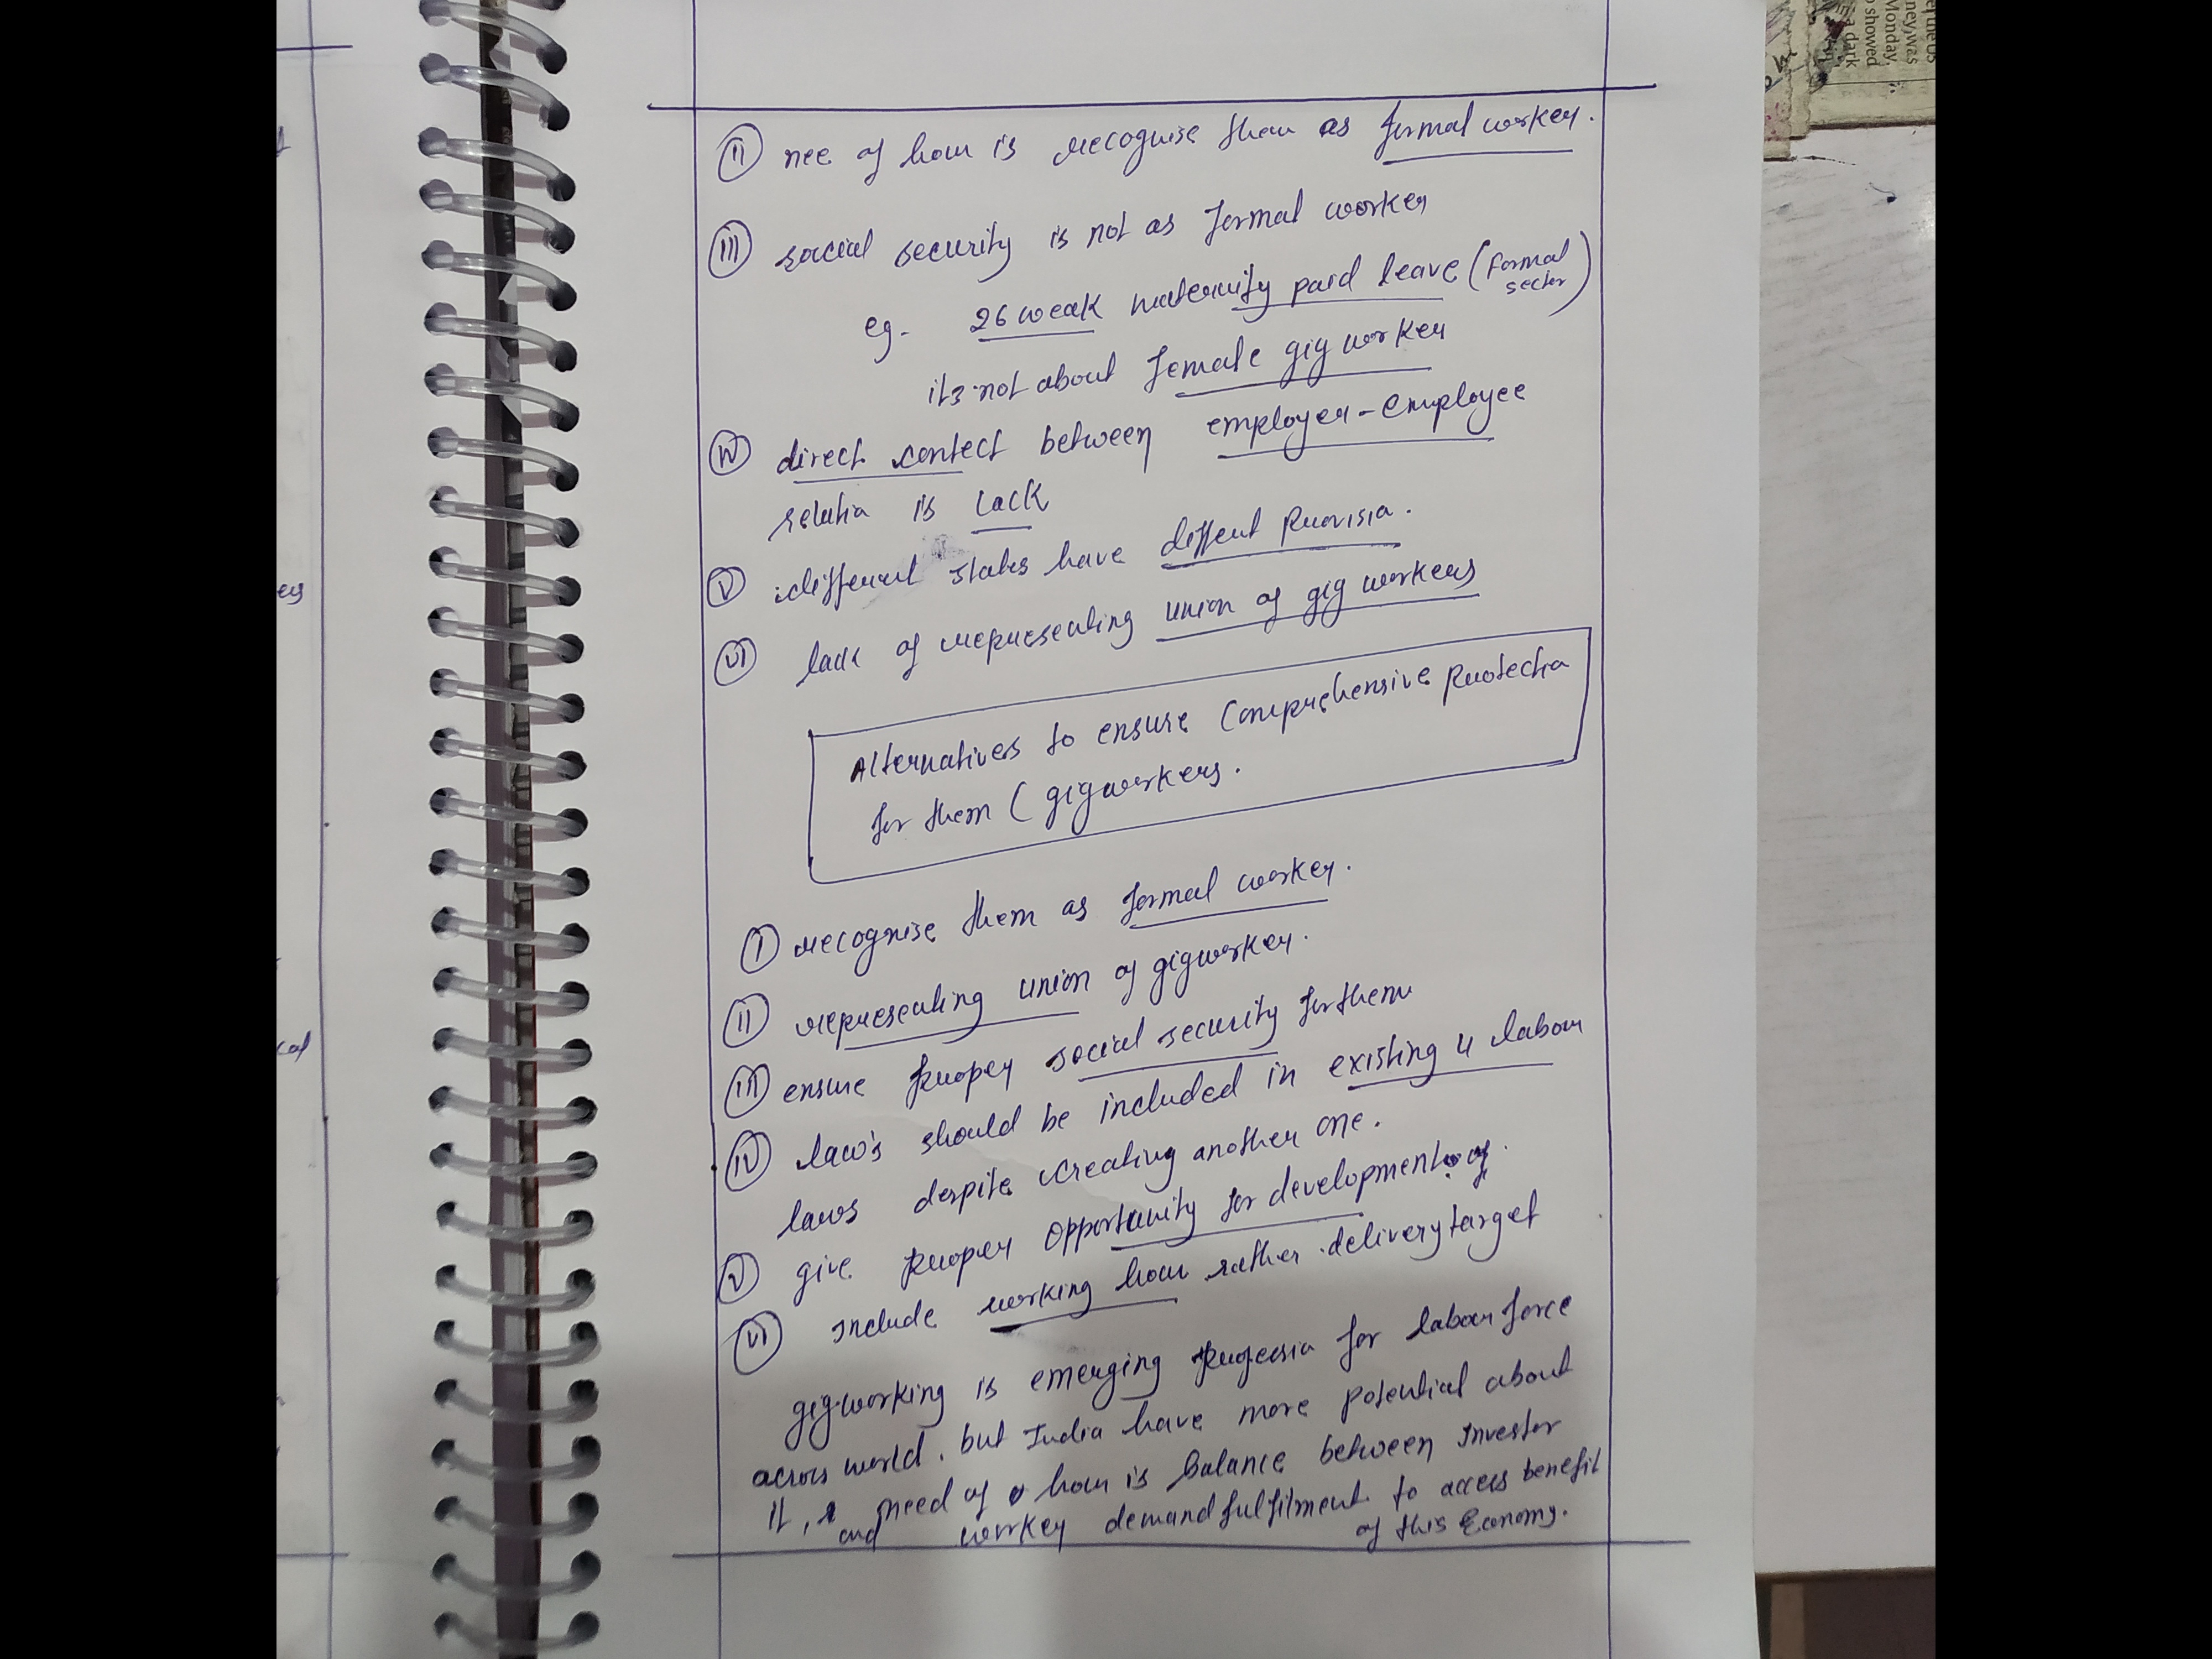 (ii) nee of hour is recognise them as formal worker.
(iii) social security is not as formal worker
eg- 26 weak maternity paid leave (formal sector)
its not about female gig worker
(iv) direct contect between employer-employee
relatio is lack
(v) different states have diffent Provisio.
(vi) lack of representing union of gig workers
Alternatives to ensure Comprehensive protectio
for them ( gigworkers.
(i) recognise them as formal worker.
(ii) representing union of gigworker.
(iii) ensure proper social security for them
(iv) law's should be included in existing 4 labour
laws despite creating another one.
(v) give proper opportunity for development of
(vi) Include working hour rather delivery target
gig working is emerging for labour force
across world. but India have more potential about
it, need of hour is balance between Investor
and worker demand fulfilment to access benefit
of this Economy.
es
cal
Monday,
showed
a dark